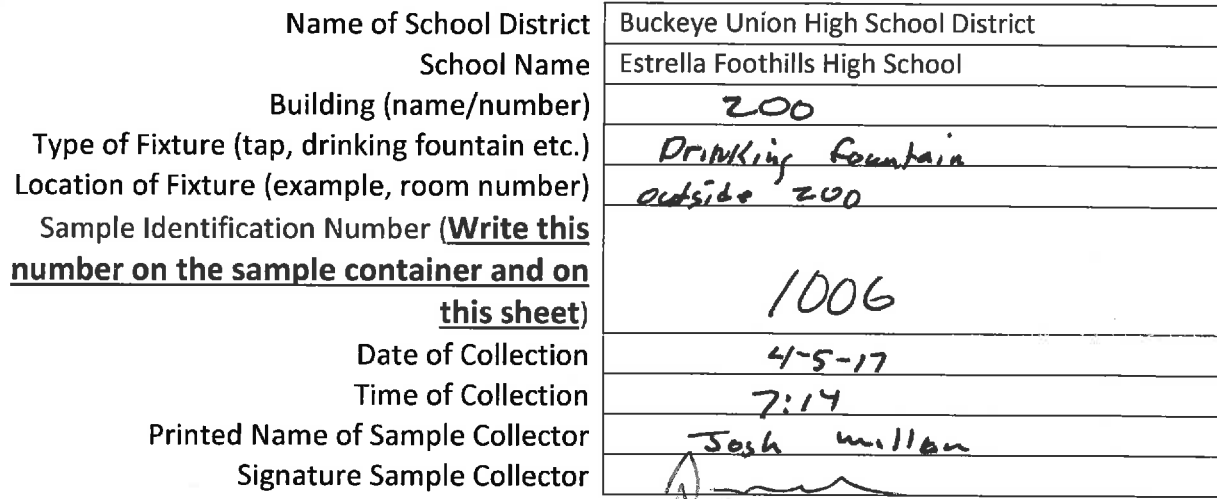 Name of School District Buckeye Union High School District
School Name Estrella Foothills High School
Building (name/number) 200
Type of Fixture (tap, drinking fountain etc.) Drinking fountain
Location of Fixture (example, room number) outside 200
Sample Identification Number (Write this
number on the sample container and on
this sheet) 1006
Date of Collection 4-5-17
Time of Collection 7:14
Printed Name of Sample Collector Josh millan
Signature Sample Collector